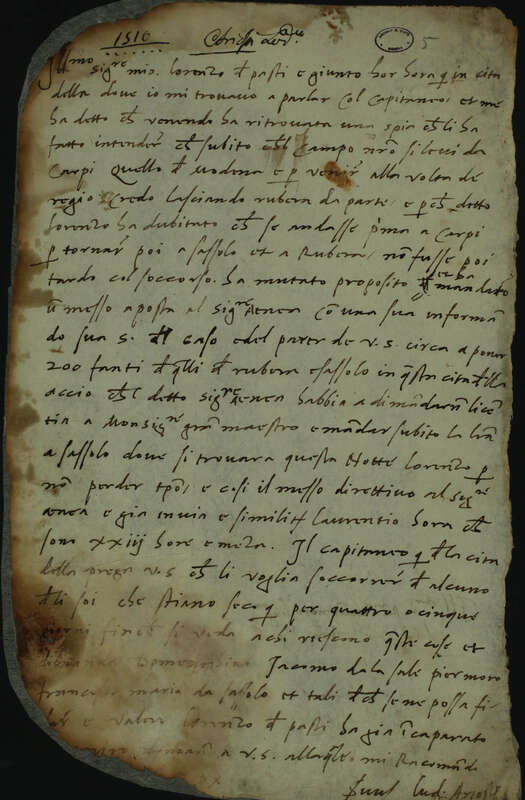 1516
5
Ill.mo
sig.re mio. lorenzo d pasti e giunto hor hora q in cita
della dove io mi trovavo a parlar col capitaneo, et me
ha detto ch venendo ha ritrovata una spia ch li ha
fatto intender ch subito ch l campo nro si levi da
Carpi Quello d Modena e p venir alla volta de
regio: Credo lasciando rubera da parte, e p ch detto
lorenzo ha dubitato ch se andasse p.ma a Carpi
p tornar poi a sassolo et a Rubera, non fusse poi
tardo col soccorso. ha mutato proposito et ha mandato
u messo a posta al sig.re Aenea co una sua informan
do sua s. dl caso e del parer de v. s. circa a poner
200 fanti d qlli d rubera e sassolo in qsta citadella
accio ch l detto sig.re Aenea habbia a dimandarn licen
tia a Monsig.re gran maestro e mandar subito la lra
a sassolo dove si trovara questa Notte lorenzo p
non perder tpo, e cosi il messo direttivo al sig.re
aenea e gia in via e similit Laurentio hora ch
sono xxiij hore e meza. Il capitaneo q d la cita
della prega v. s. ch li voglia soccorrer d alcuno
d li soi che stiano seco q per quattro o cinque
giorni finch si veda a ch riescono qste cose et
Iacomo da la sale piermoro
francesco maria da sassolo et tali d ch se ne possa fi-
dar e valere lorenzo d pasti ha gia i caparato
a v. s. alla qle mi Racomndo
Lud. Ariosto